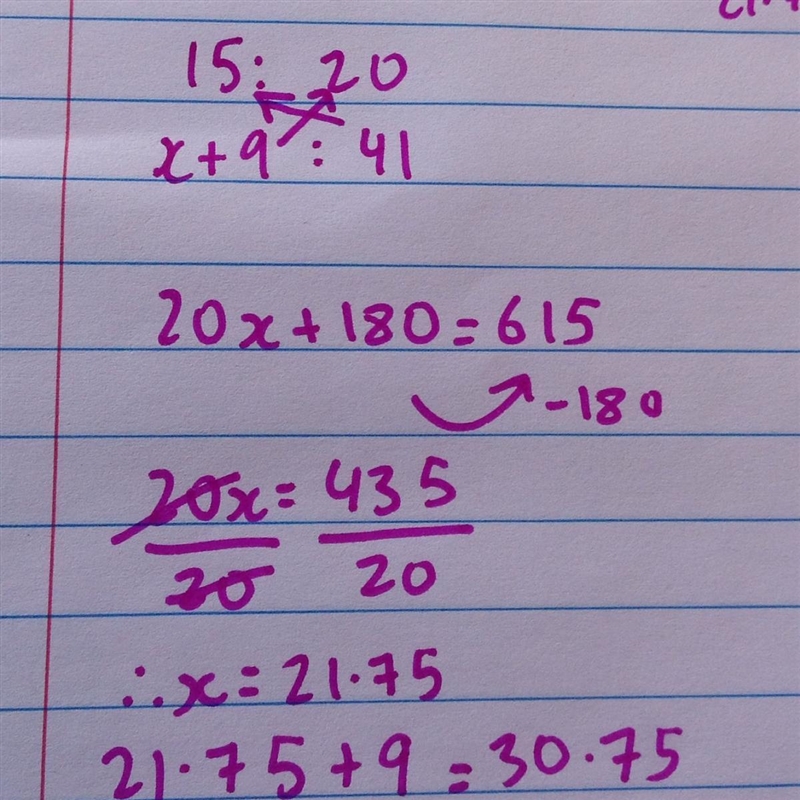 15: 20
x+9 : 41
20x+180=615
-180
20x= 435
20 20
∴x=21.75
21.75+9=30.75